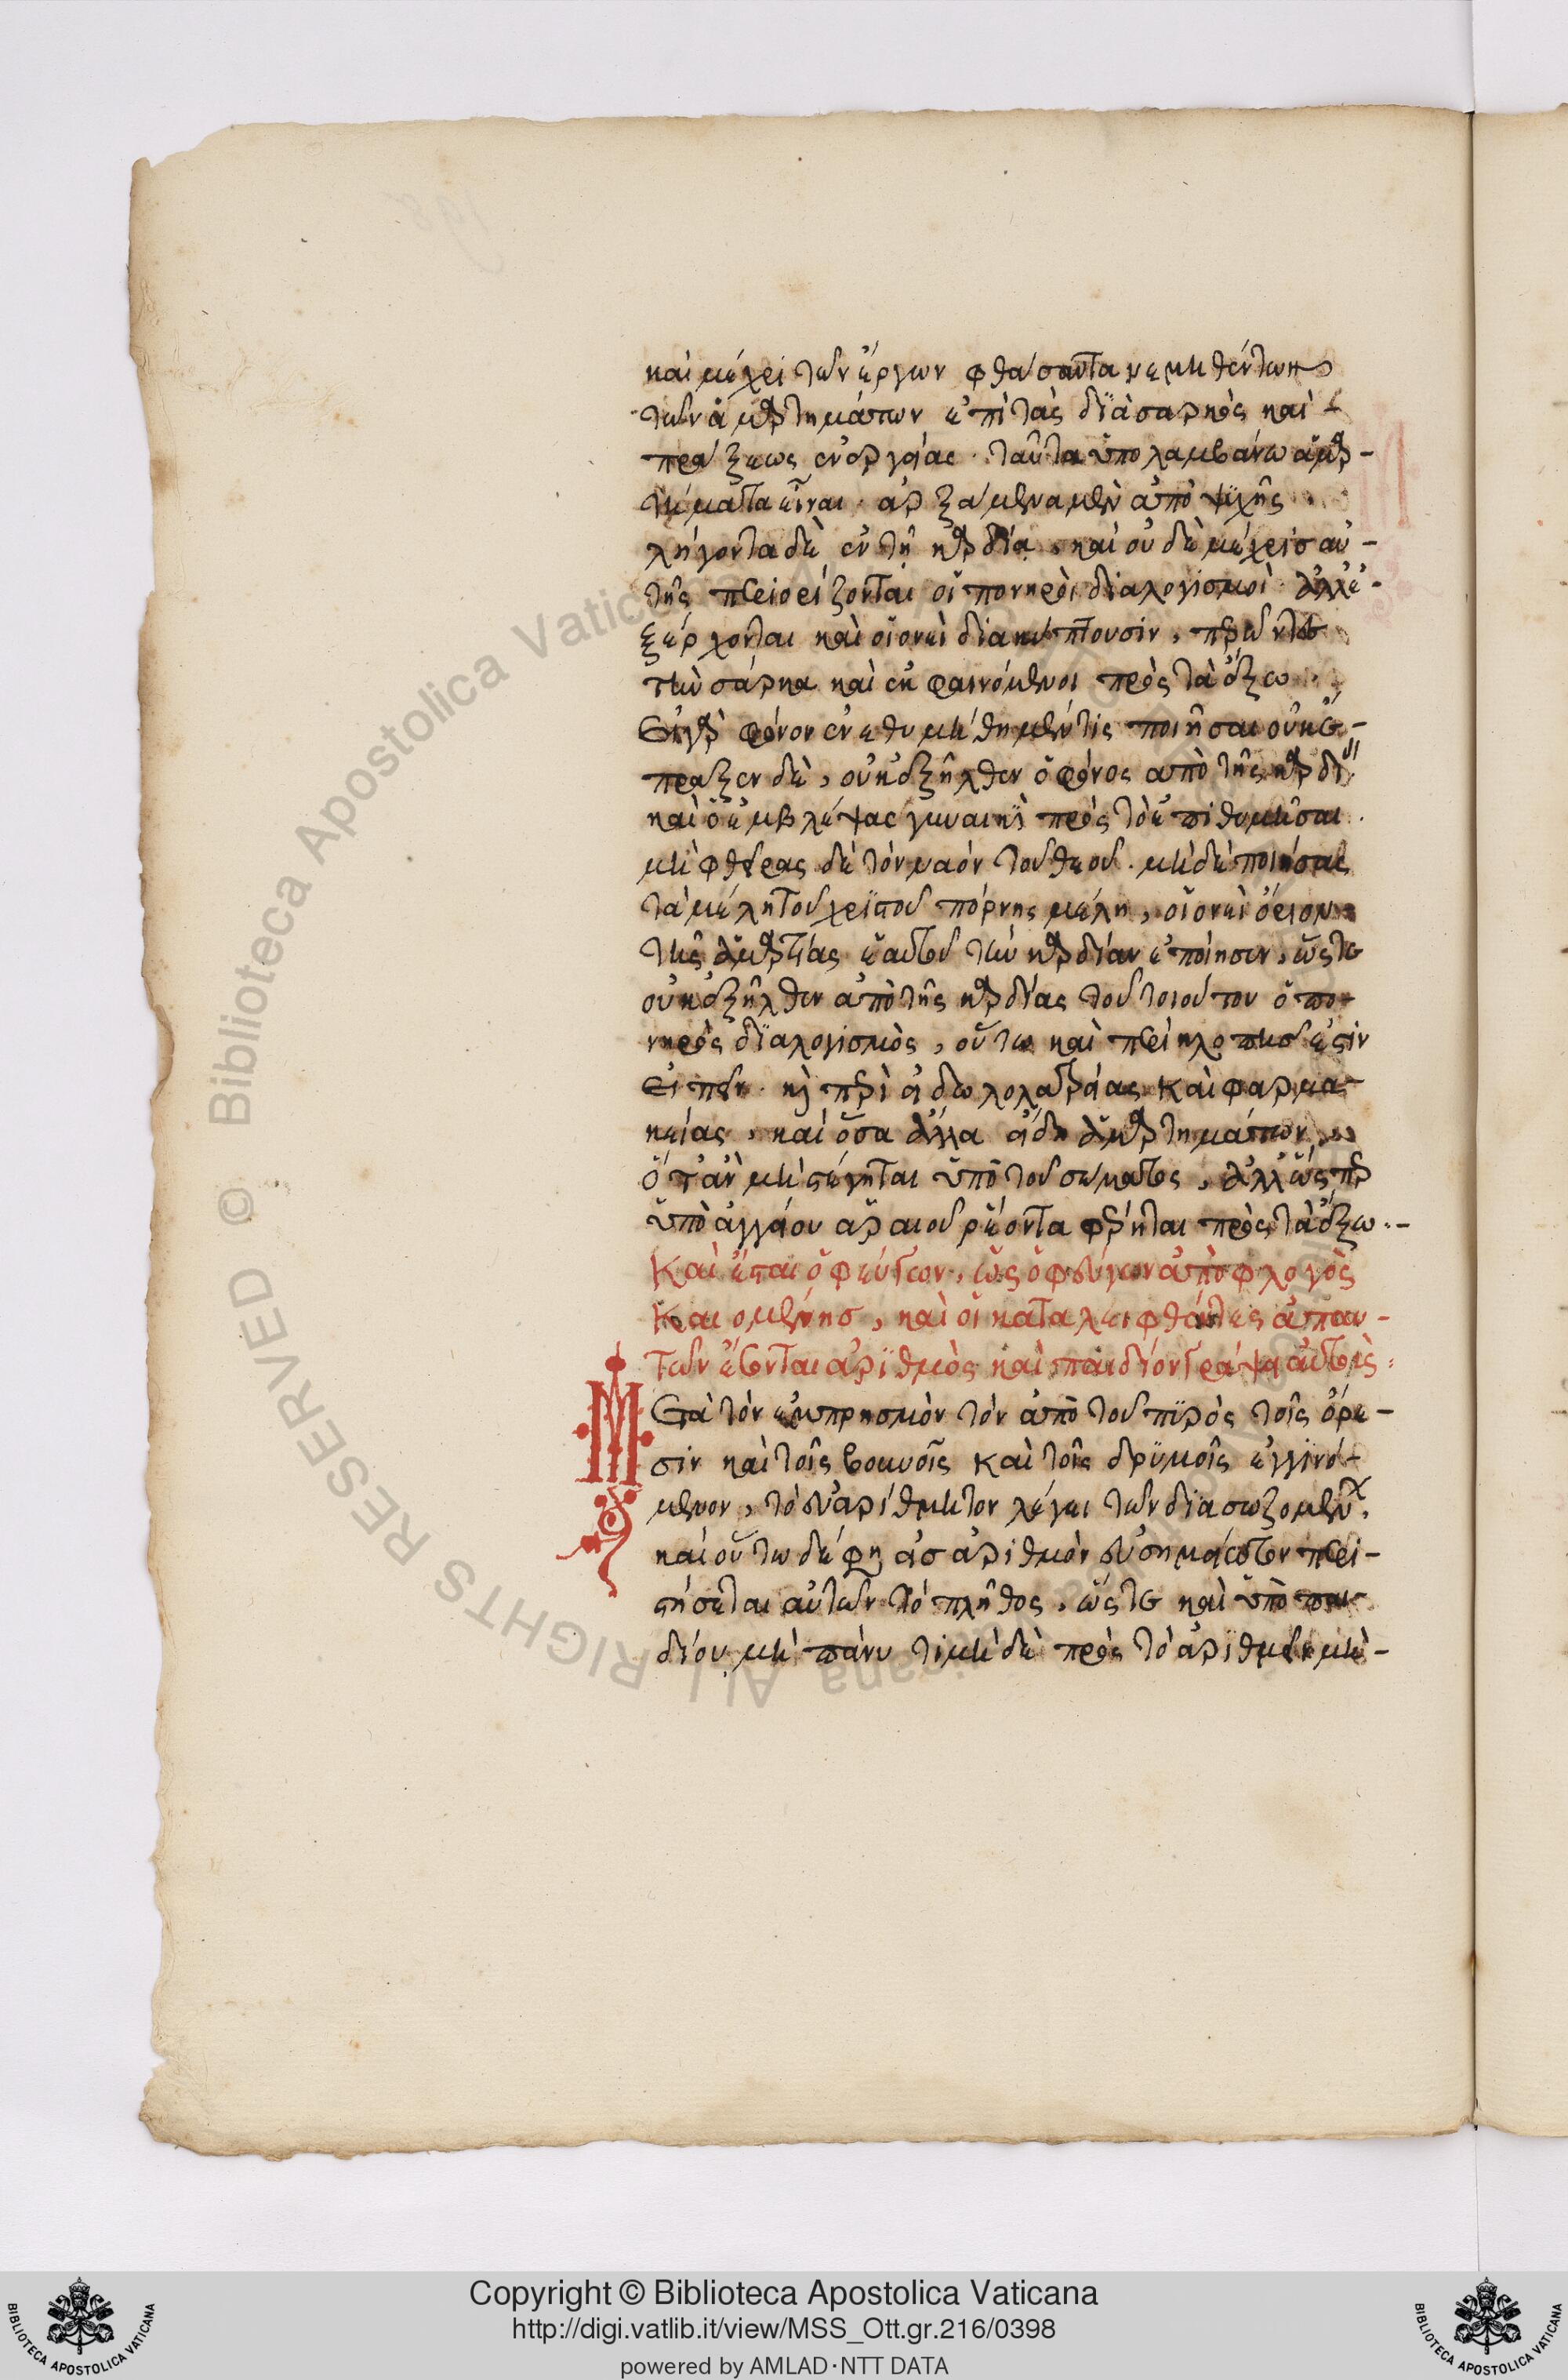 καὶ μέχρι τῶν ἔργων φθάσαντα νεμηθέντων
τῶν ἁμαρτημάτων ἐπὶ τὰς διὰ σαρκὸς καὶ
πράξεως ἐνεργείας. ταῦτα ὑπολαμβάνω ἁμαρ-
τήματα εἶναι. ἀρξάμενα μὲν ἀπὸ ψυχῆς
λήγοντα δὲ ἐν τῇ καρδίᾳ, καὶ οὐδὲ μέχρις αὐ-
τῆς περιορίζονται οἱ πονηροὶ διαλογισμοὶ ἀλλ' ἐ-
ξέρχονται καὶ οἱονεὶ διακύπτουσιν,
τὴν σάρκα καὶ ἐκφαινόμενοι πρὸς τὰ ἔξω.
Εἰ γὰρ φόνον ἐνεθυμήθη μέν τις ποιῆσαι οὐκ ἔ-
πραξεν δὲ, οὐκ ἐξῆλθεν ὁ φόνος ἀπὸ τῆς καρδί
καὶ ὁ ἐμβλέψας γυναικὶ πρὸς τὸ ἐπιθυμῆσαι.
μὴ φθείρας δὲ τὸν ναὸν τοῦ θεοῦ. μὴ δὲ ποιήσας
τὰ μέλη τοῦ χριστοῦ πόρνης μέλη, οἱονεὶ ὅριον
τῆς ἁμαρτίας ἑαυτοῦ τὴν καρδίαν ἐποίησεν, ὥστε
οὐκ ἐξῆλθεν ἀπὸ τῆς καρδίας τοῦ τοιούτου ὁ πο-
νηρὸς διαλογισμὸς, οὕτω καὶ περὶ κλοπῆς ἐστὶν
εἰπεῖν. καὶ περὶ εἰδωλολατρείας καὶ φαρμα-
κείας, καὶ ὅσα ἄλλα εἴδη ἁμαρτημάτων,
ὅταν μὴ στέγηται ὑπὸ τοῦ σώματος, ἀλλ' ὥσπερ
ὑπὸ ἀγγείου ἀραιοῦ ῥέοντα φέρηται πρὸς τὰ ἔξω.-
Καὶ ἔσται ὁ φεύγων, ὡς ὁ φεύγων ἀπὸ φλογὸς
καιομένης, καὶ οἱ καταλειφθέντες ἀπ' αὐ-
τῶν ἔσονται ἀριθμὸς καὶ παιδίον γράψει αὐτούς:
Μετὰ τὸν ἐμπρησμὸν τὸν ἀπὸ τοῦ πυρὸς τοῖς ὄρε-
σιν καὶ τοῖς βουνοῖς καὶ τοῖς δρυμοῖς ἐγγινό-
μενον, τὸ εὐαρίθμητον λέγει τῶν διασωζομένων.
καὶ οὕτω δέ φησιν εἰς ἀριθμὸν εὐσήμαστον περι-
στήσεται αὐτῶν τὸ πλῆθος, ὥστε καὶ ὑπὸ παι-
δίου μὴ πάνυ τι μὴ δὲ πρὸς τὸ ἀριθμεῖν μὴ-
Copyright © Biblioteca Apostolica Vaticana
http://digi.vatlib.it/view/MSS_Ott.gr.216/0398
powered by AMLAD·NTT DATA
BIBLIOTECA APOSTOLICA VATICANA
BIBLIOTECA APOSTOLICA VATICANA
Biblioteca Apostolica Vaticana ALL RIGHTS RESERVED ©